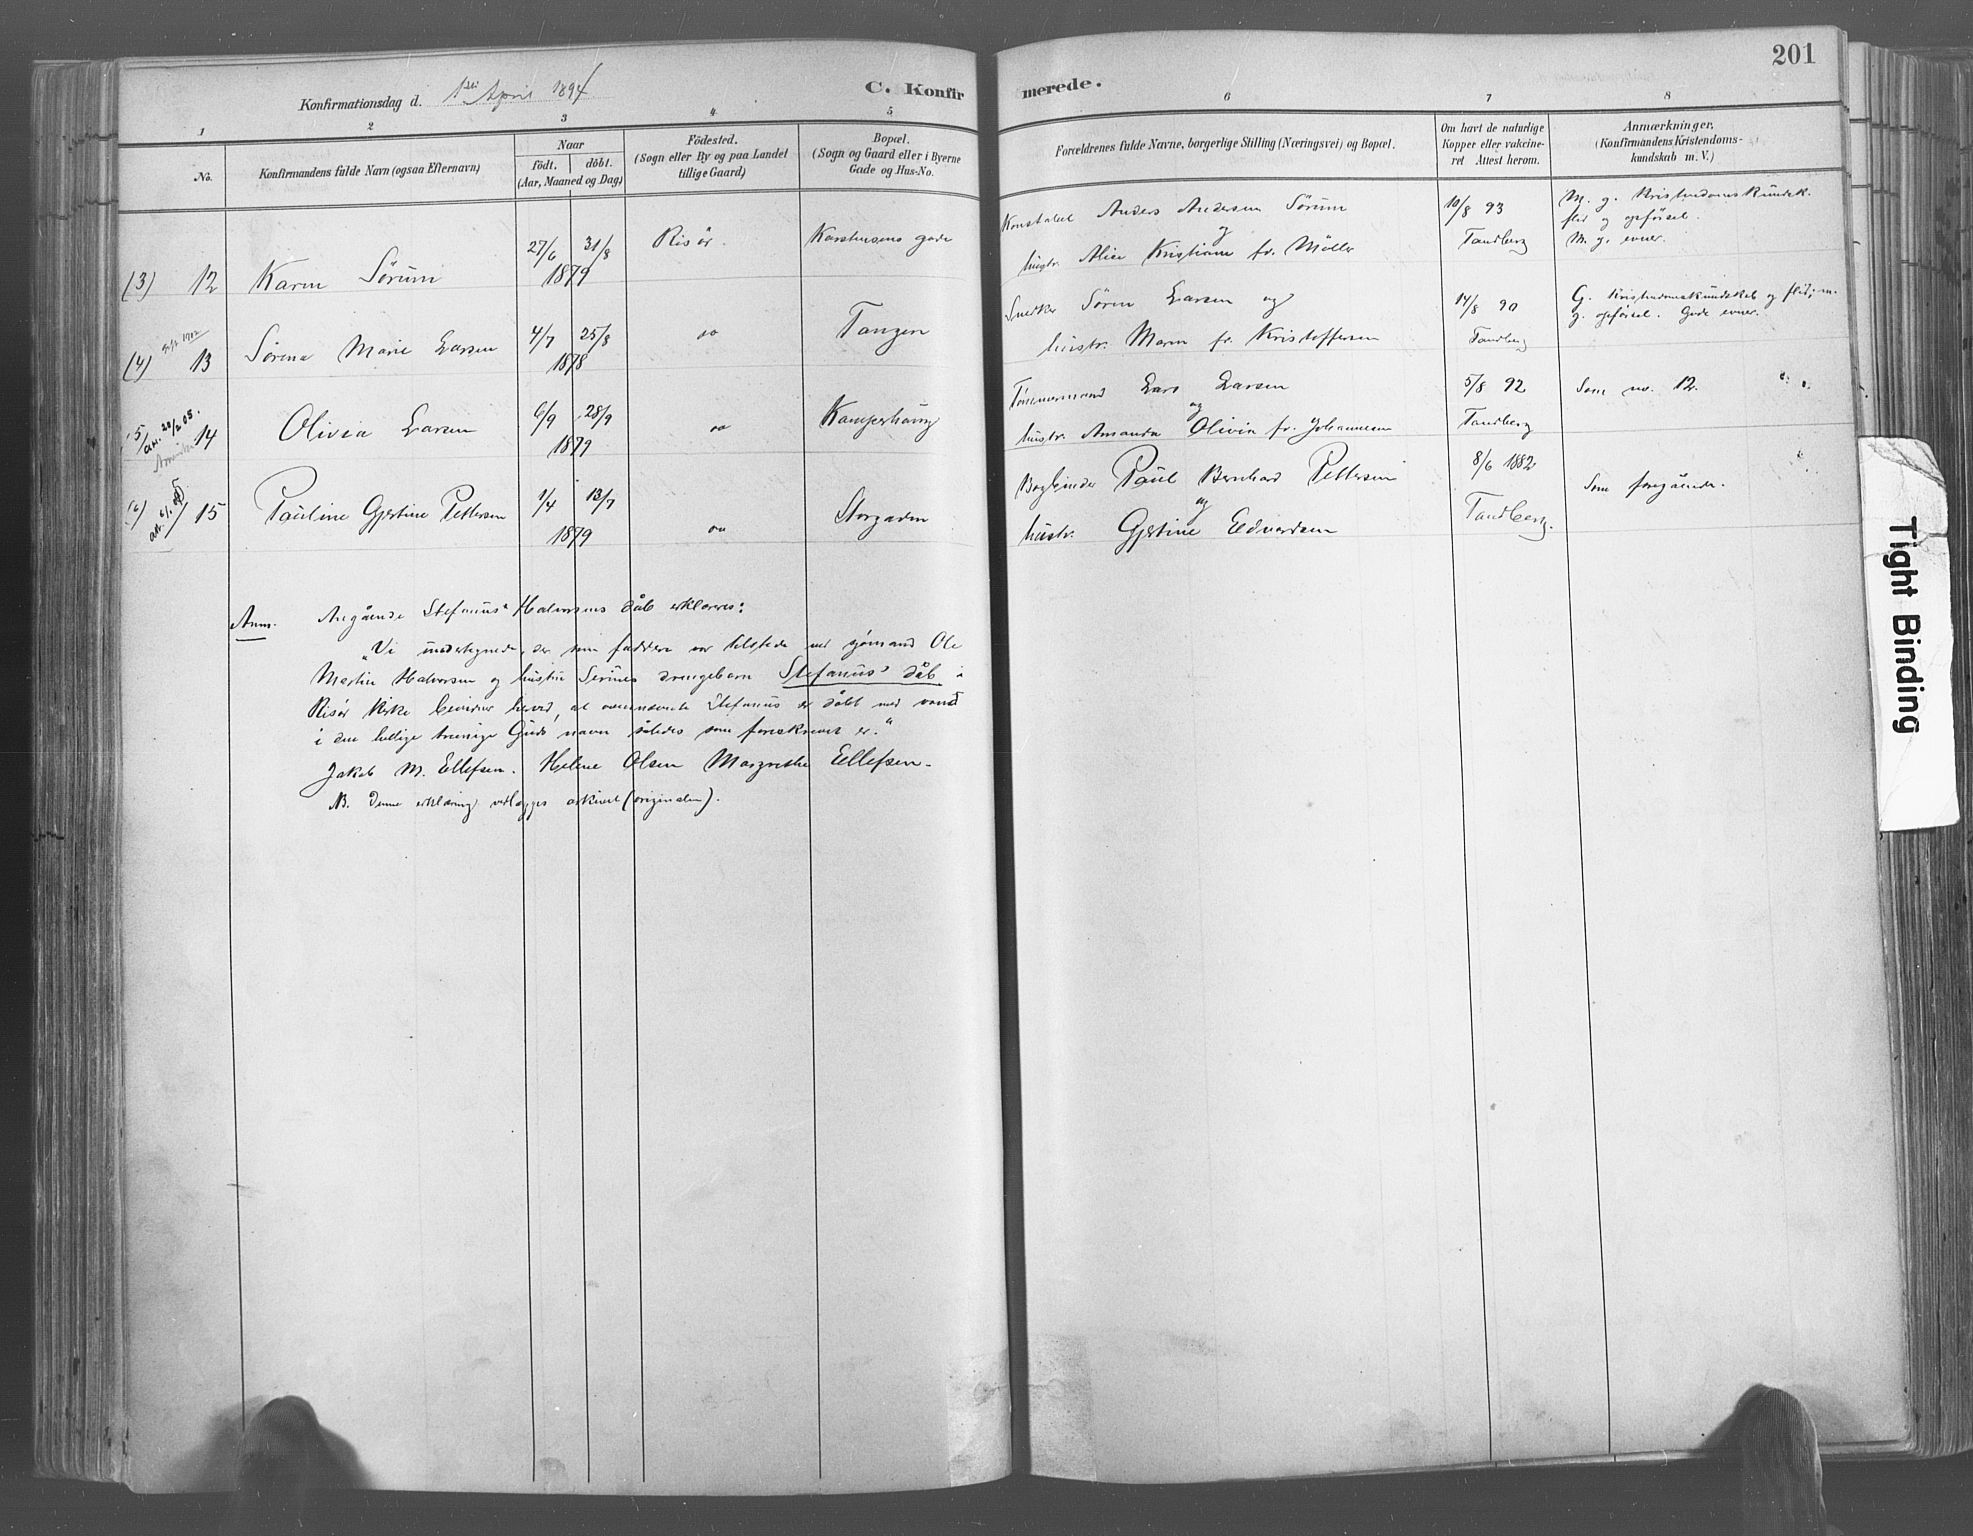 201
Konfirmationsdag d. 1ste April 1894
C. Konfirmerede.
1 2 3 4 5 6 7 8
No.
Konfirmandens fulde Navn (ogsaa Efternavn)
Naar
födt. döbt.
(Aar, Maaned og Dag)
Födested.
(Sogn eller By og paa Landet
tillige Gaard)
Bopæl.
(Sogn og Gaard eller i Byerne
Gade og Hus-No.
Forældrenes fulde Navne, borgerlige Stilling (Næringsvei) og Bopæl.
Om havt de naturlige
Kopper eller vakcine-
ret Attest herom.
Anmærkninger.
(Konfirmandens Kristendoms-
kundskab m. V.)
(3) 12 Karen Sörum 27/6 31/8 1879 Risör. Karstensens gade
Konstabel Anders Andersen Sörum
og
hustr. Alice Kristiane fr. Möller
10/8 93
Tandberg
M. g. Kristendomskundsk.
flid og opförsel.
M. g. evner.
(4) 13 Sörine Marie Larsen 4/7 25/8 1878 do Tangen
Snedker Sören Larsen og
hustr. Maren fr. Kristoffersen
14/8 90
Tandberg
G. Kristendomskundskab og flid; m.
g. opförsel. Gode evner.
(5) att. 20/2 05. 14 Olivia Larsen 6/9 28/9 1879 do Kamperhaug
Tömmermand Lars Larsen
og
hustr. Amanda Olivia fr. Johannesen
5/8 92
Tandberg
Som no. 12.
15 Pauline Gjertine Pettersen 1/4 13/7 1879 do Storgaden
Bogbinder Paul Bernhard Pettersen
og
hustr. Gjertine Edvardsen
8/6 1882
Tandberg.
Som foregående.
Anm. Angående Stefanus Halvorsens dåb erklæres:
"Vi undertegnede, der som faddere var tilstede ved sjömand Ole
Martin Halvorsen og hustru Serines drengebarn Stefanus' dåb i
Risör kirke bevidner herved, at ovennævnte Stefanus er döbt med vand
i den hellige treenige Guds navn således som foreskrevet er."
Jakob M. Ellefsen. Helene Olsen Margrethe Ellefsen.
NB. Denne erklæring vedlægges arkivet (originalen).
Tight Binding